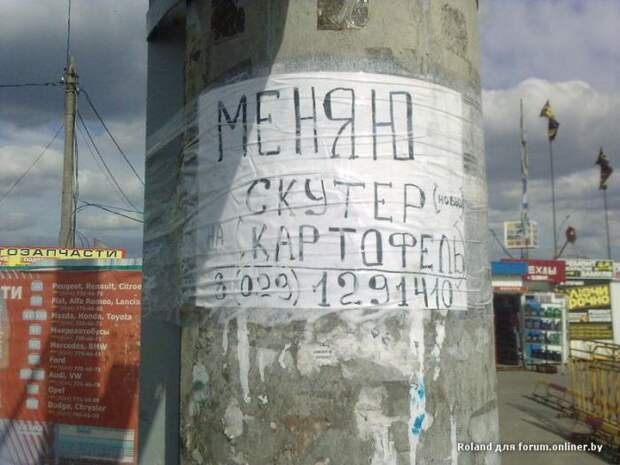 МЕНЯЮ
СКУТЕР (новый)
НА КАРТОФЕЛЬ
8 (029) 1291410
ТОЗАПЧАСТИ
ТИ
Peugeot, Renault, Citroe
Fiat, Alfa Romeo, Lancia
Mazda, Honda, Toyota
Микроавтобусы
Mercedes, BMW
Ford
Audi, VW
Opel
Dodge, Chrysler
ЧЕХЛЫ
Roland для forum.onliner.by